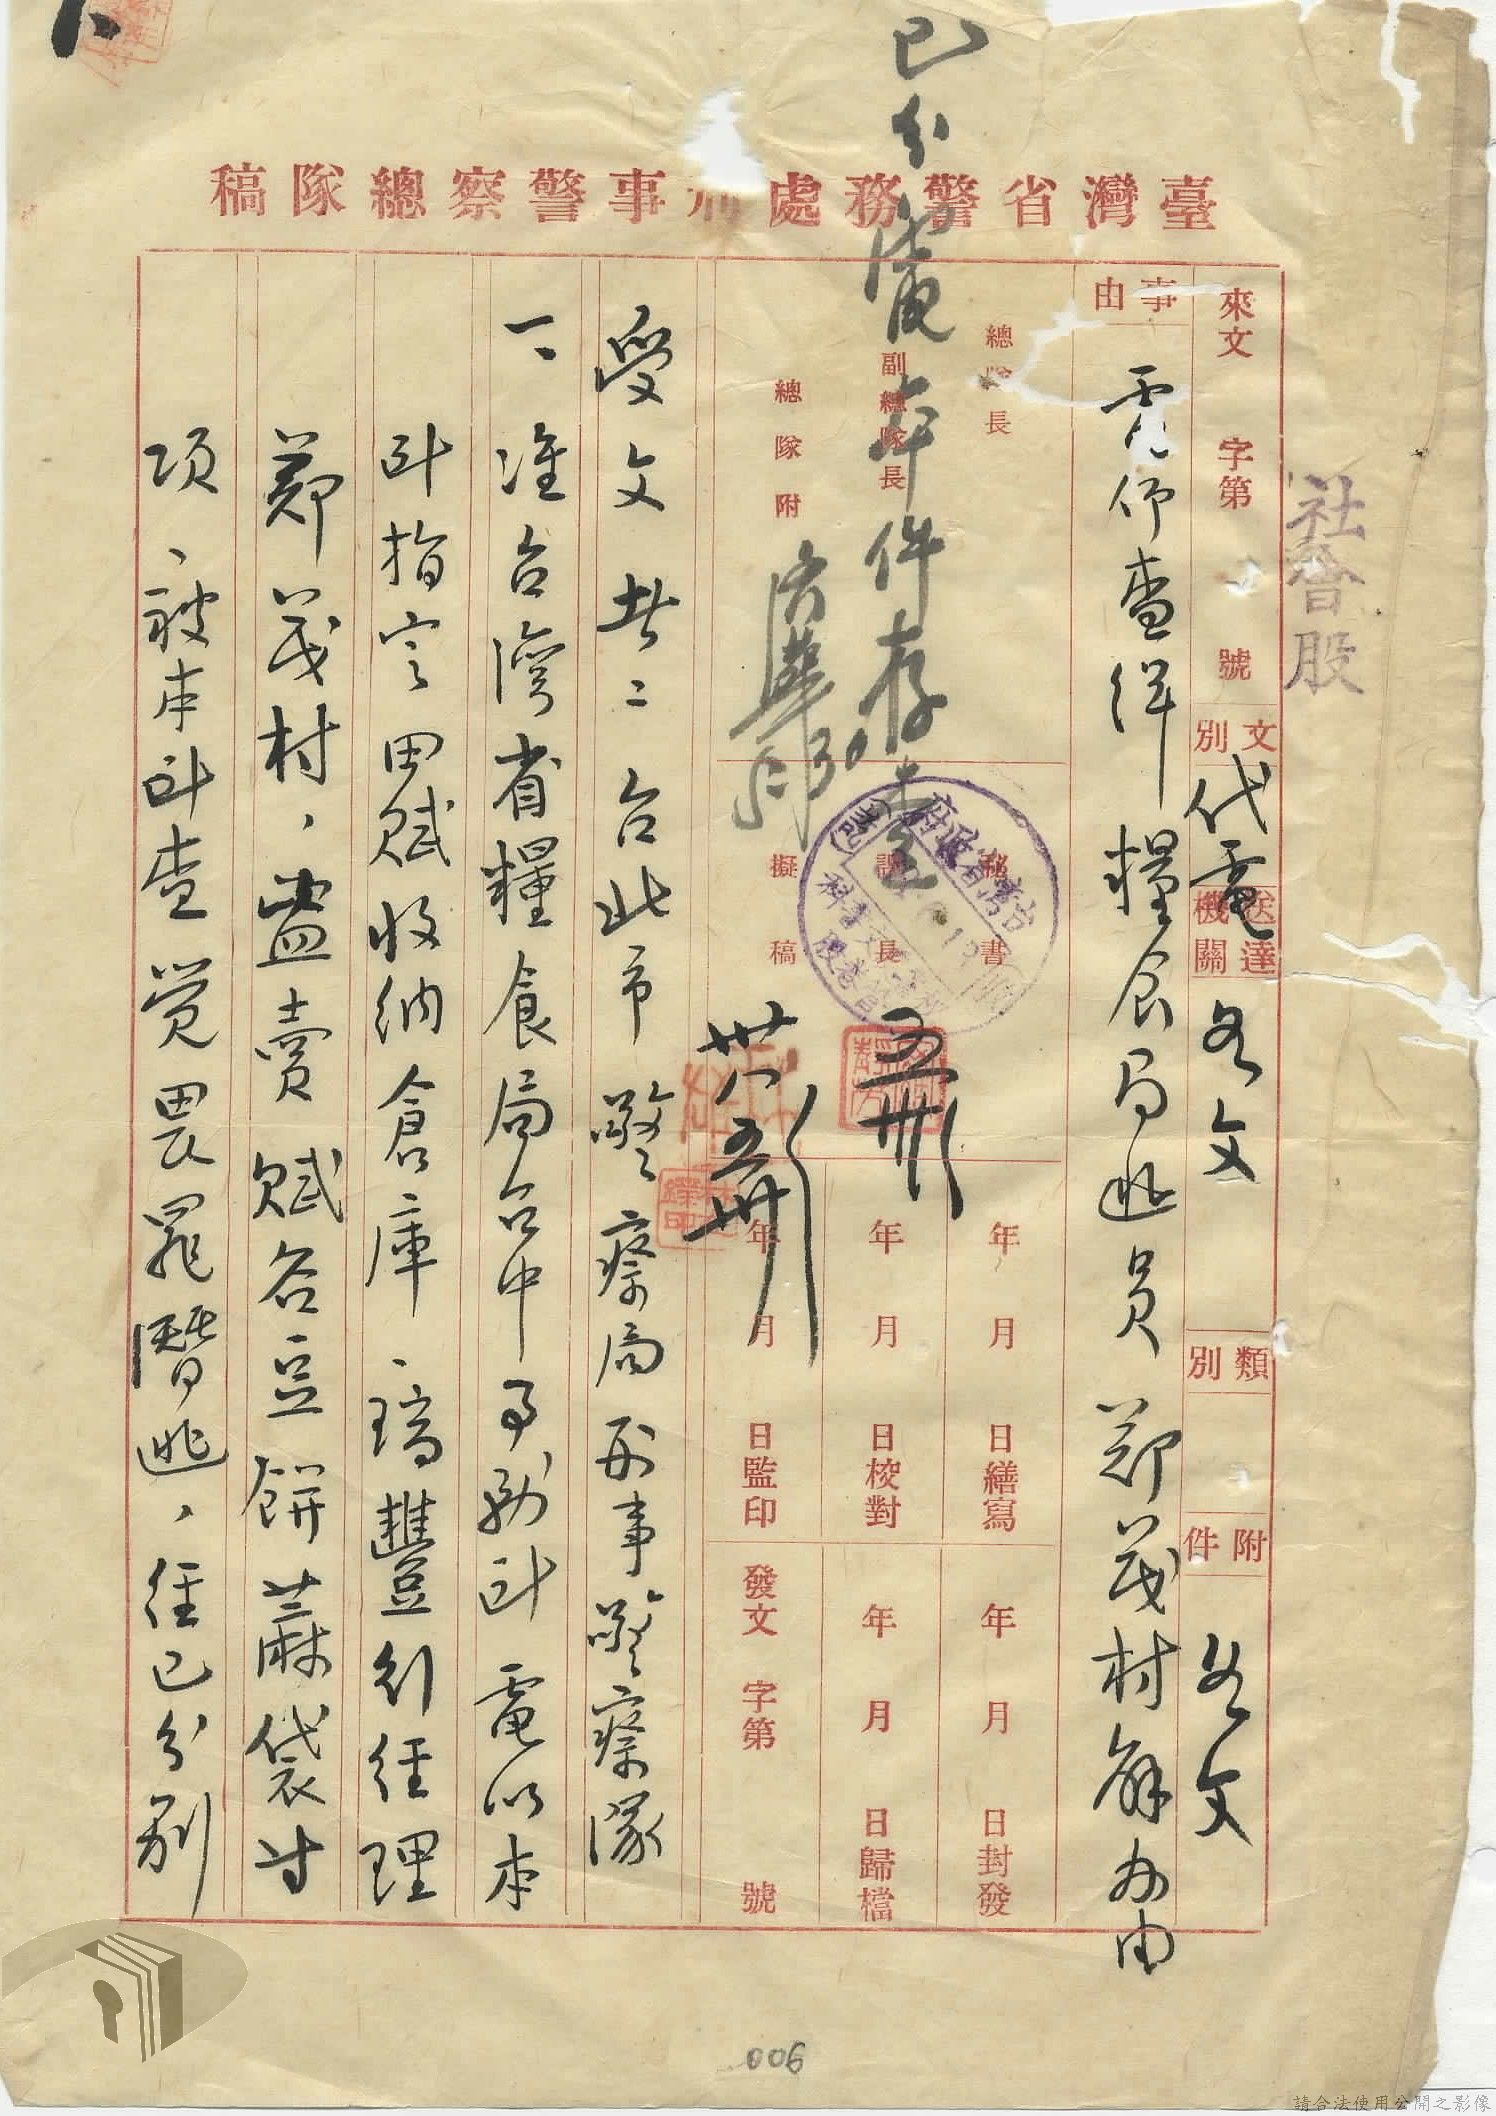 已分電本件存查
臺灣省警務處刑事警察總隊稿
社會股
來文 字第 號
文別 代電
送達機關 各文
類別
附件 如文
事由
電仰查緝糧食局逃員鄭茂村解辦由
總隊長
副總隊長
總隊附
30
秘書
課長 五卅
擬稿 卅八 五 卅
台灣省政府
年 月 日繕寫
年 月 日校對
年 月 日監印
年 月 日封發
年 月 日歸檔
發文 字第 號
受文者：台北市警察局刑事警察隊
一、准台灣省糧食局台中事務所電以本
所指定田賦收納倉庫、瑞豐行經理
鄭茂村，盜賣賦谷豆餅蔴袋等
項、被本所查覺畏罪潛逃，經已分別
006
請合法使用公開之影像